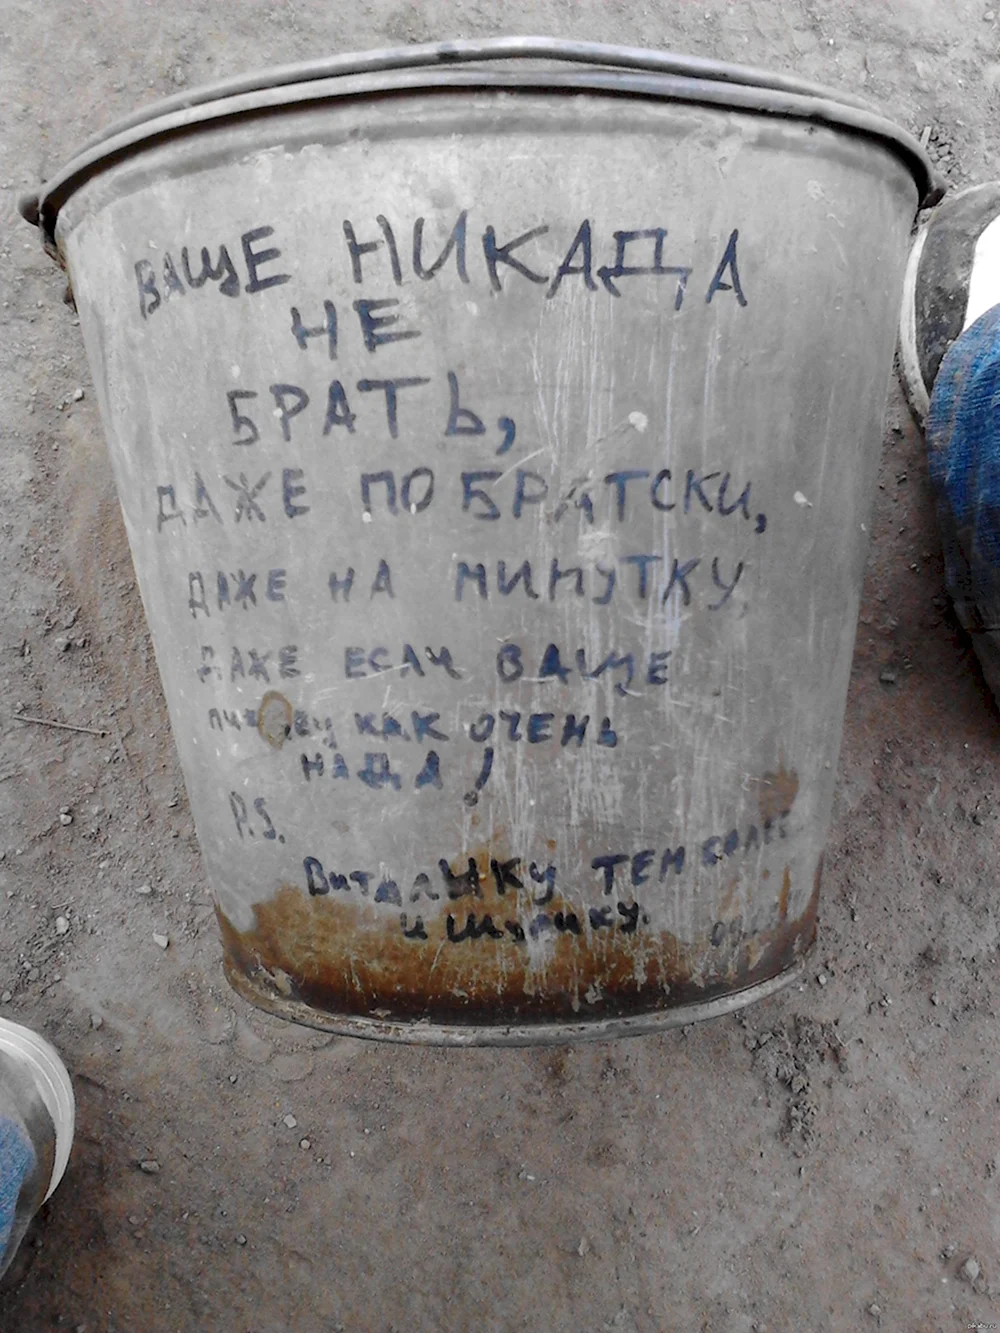 ВАЩЕ НИКАДА
НЕ
БРАТЬ,
ДАЖЕ ПО БРАТСКИ,
ДАЖЕ НА МИНУТКУ,
ДАЖЕ ЕСЛИ ВАЩЕ
КАК ОЧЕНЬ
НАДА!
P.S.
ВиталЫКу ТЕМ БОЛЕЕ
и Шурику.
pikabu.ru